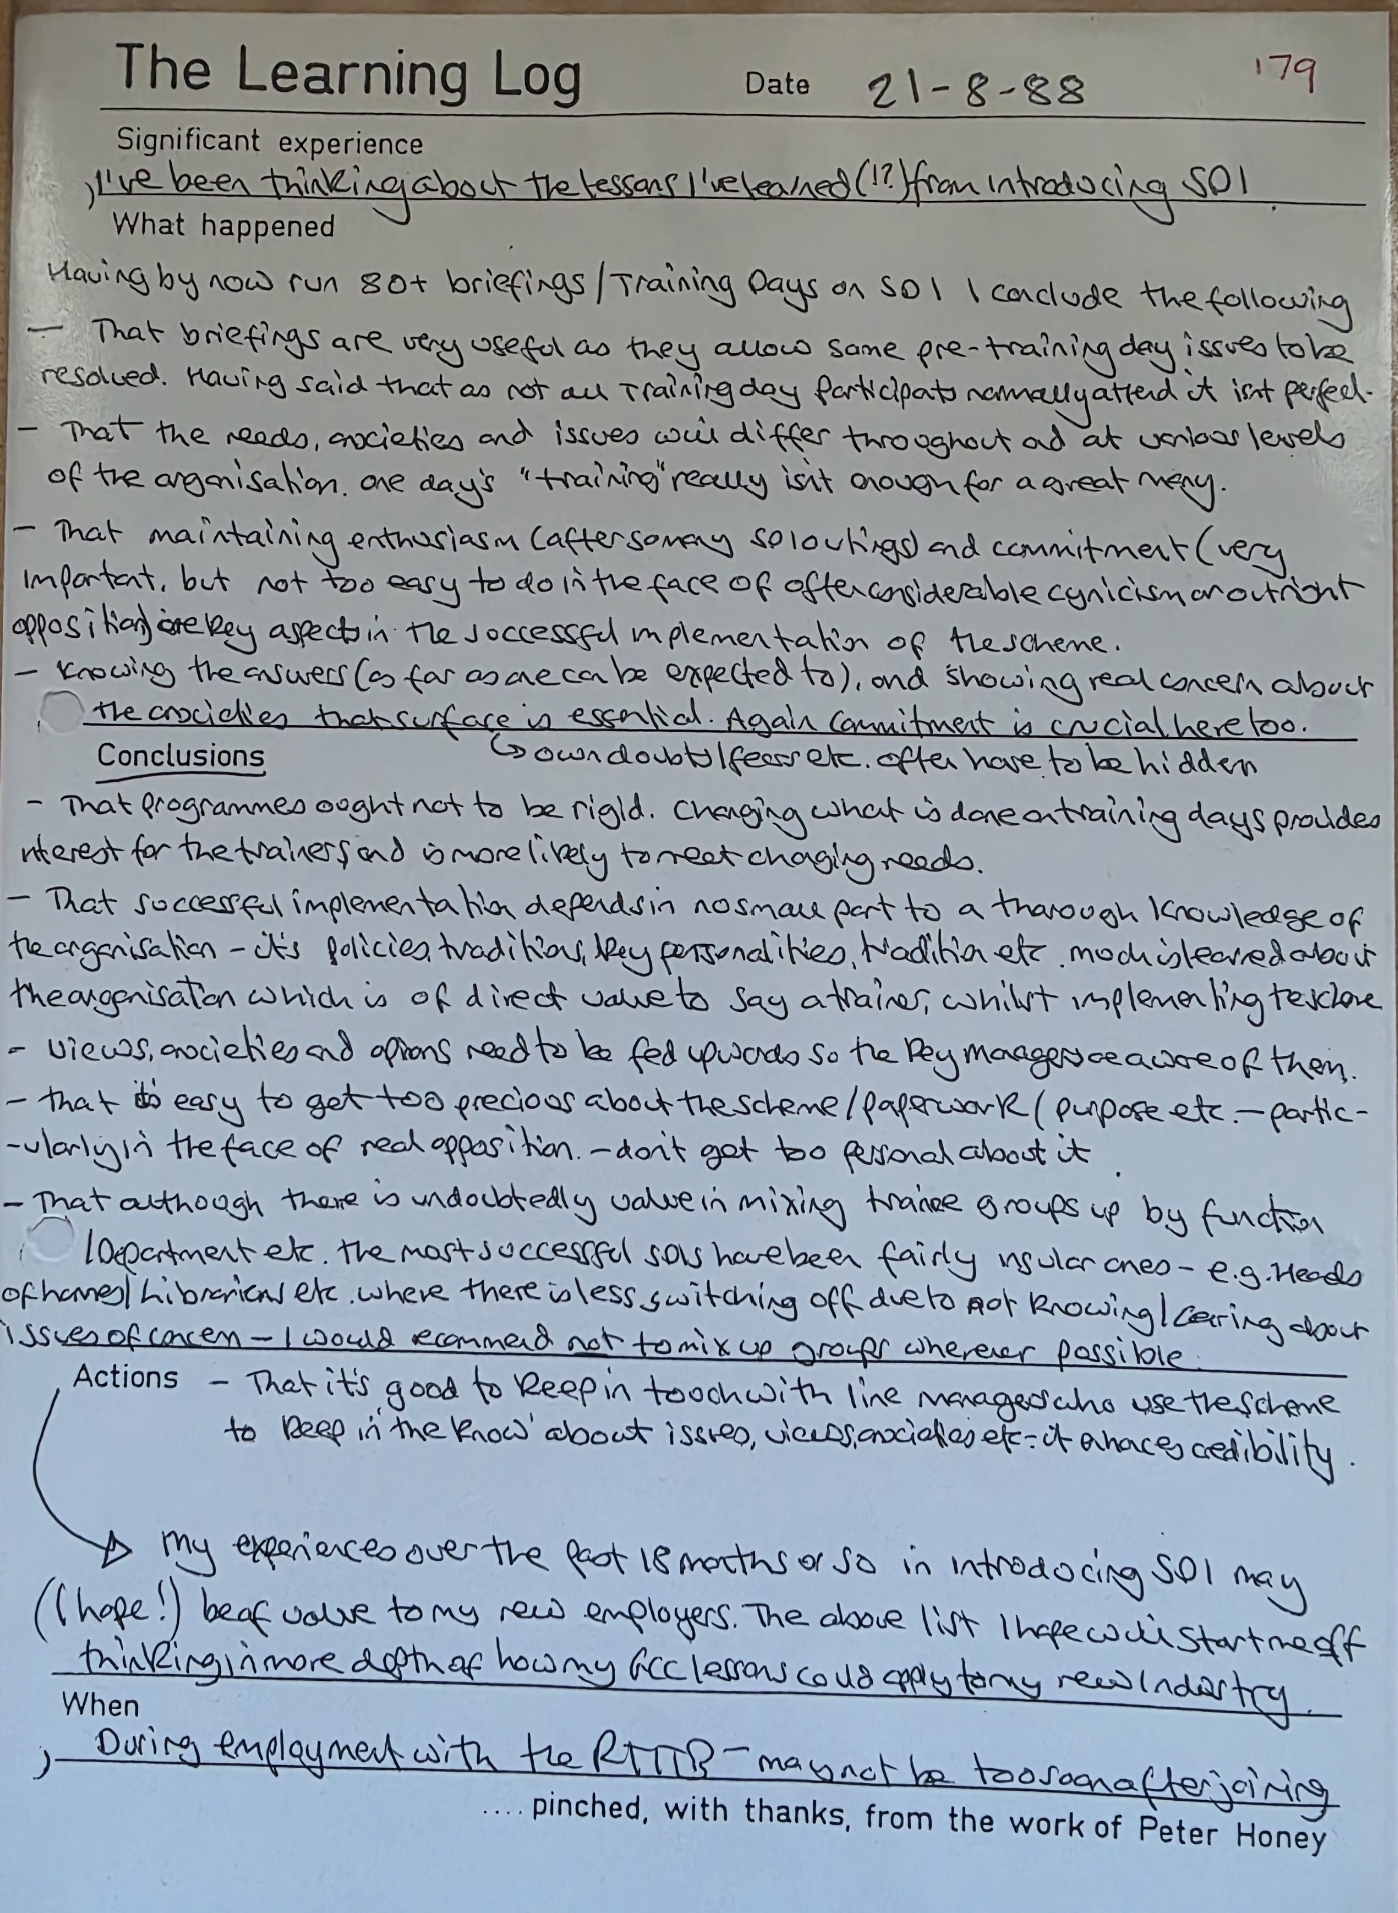 The Learning Log Date 21-8-88 179
Significant experience
I've been thinking about the lessons I've learned (!?) from introducing SDI
What happened
Having by now run 80+ briefings/Training Days on SDI I conclude the following
- That briefings are very useful as they allow some pre-training day issues to be
resolved. Having said that as not all Training day participats normally attend it isn't perfect.
- That the needs, anxieties and issues will differ throughout and at various levels
of the organisation. one day's "training" really isn't enough for a great many.
- That maintaining enthusiasm (after so many SDI outings) and commitment (very
important, but not too easy to do in the face of often considerable cynicism or outright
opposition) are key aspects in the successful implementation of the scheme.
- Knowing the answers (as far as one can be expected to), and showing real concern about
the anxieties that surface is essential. Again commitment is crucial here too.
Conclusions ↳ own doubts/fears etc. often have to be hidden
- That programmes ought not to be rigid. Changing what is done on training days provides
interest for the trainers and is more likely to meet changing needs.
- That successful implementation depends in no small part to a thorough knowledge of
the organisation - it's policies, traditions, key personalities, tradition etc. much is learned about
the organisation which is of direct value to say a trainer, whilst implementing the scheme
- views, anxieties and opinions need to be fed upwards so the key managers are aware of them.
- that it's easy to get too precious about the scheme/paperwork/purpose etc. - partic-
-ularly in the face of real opposition. - don't get too personal about it.
- That although there is undoubtedly value in mixing trainee groups up by function
/Department etc. the most successful SDIs have been fairly insular ones - e.g. Heads
of homes/Librarians etc. where there is less switching off due to not knowing/caring about
issues of concern - I would recommend not to mix up groups wherever possible.
Actions - That it's good to keep in touch with line managers who use the scheme
to keep 'in the know' about issues, views, anxieties etc - it enhances credibility.
My experiences over the past 18 months or so in introducing SDI may
(I hope!) be of value to my new employers. The above list I hope will start me off
thinking in more depth of how my GCC lessons could apply to my new industry.
When
During employment with the RTITB - may not be too soon after joining
.... pinched, with thanks, from the work of Peter Honey